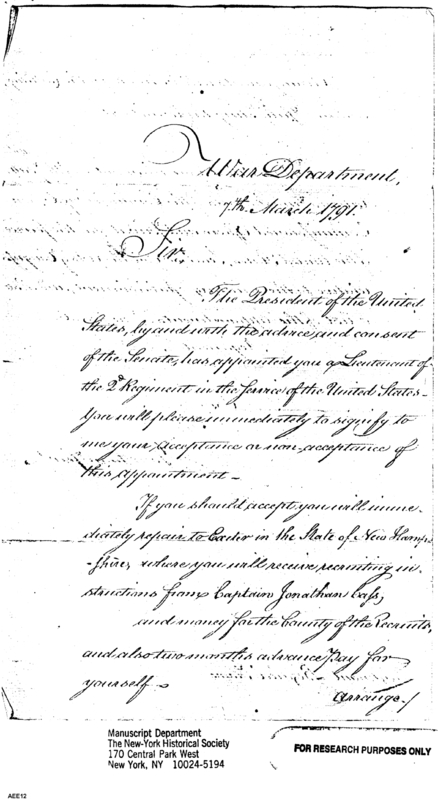 War Department,
7th March 1791.
Sir,
The President of the United
States, by and with the advice and consent
of the Senate, has appointed you a Lieutenant of
the 2d Regiment in the Service of the United States—
You will please immediately to signify to
me your acceptance or non-acceptance of
this appointment—
If you should accept you will imme-
diately repair to Exeter in the State of New Hamp
-shire, where you will receive recruiting in-
structions from Captain Jonathan Cass,
and money for the bounty of the Recruits,
and also two months advance Pay for
yourself—
arrange/
Manuscript Department
The New-York Historical Society
170 Central Park West
New York, NY 10024-5194
FOR RESEARCH PURPOSES ONLY
AEE12